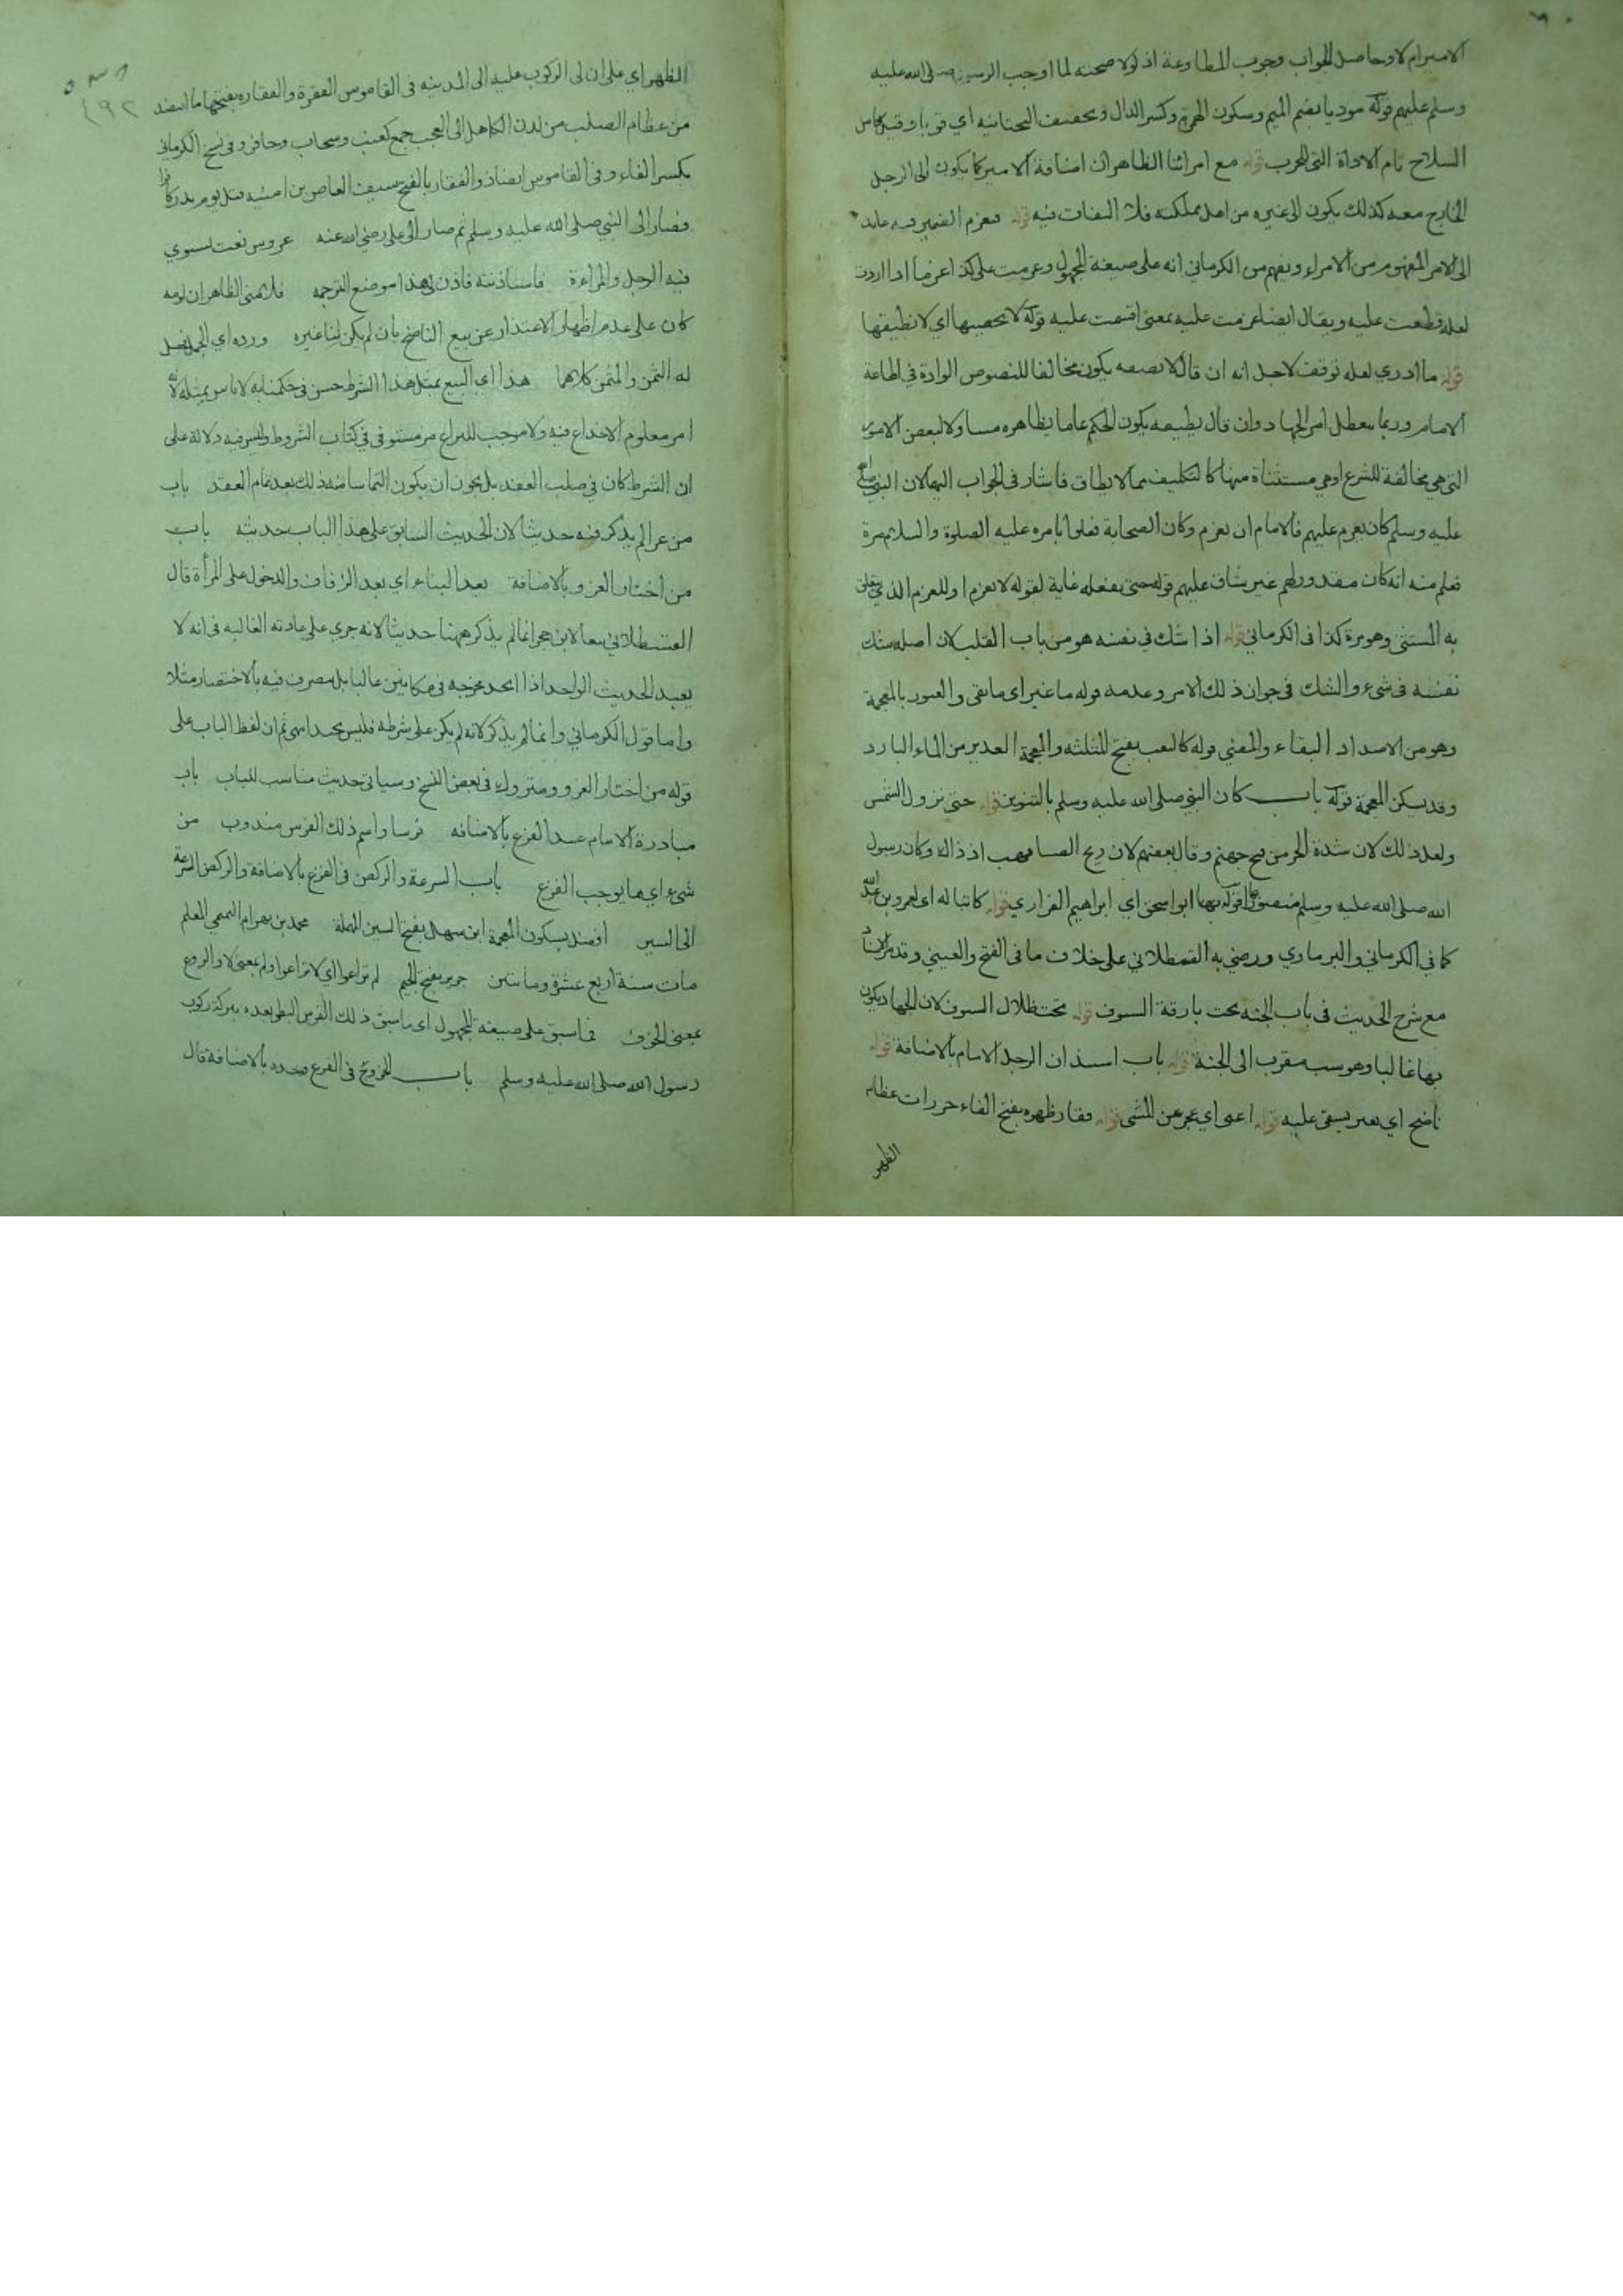 الاميرام لا وحاصل الجواب وجوب المطاوعة اذ لولا صحته لما اوجب الرسول صلى الله عليه
وسلم عليهم قوله موديا بضم الميم وسكون الهمزة وكسر الدال وتخفيف التحتانيه اي قويا وقيل كامل
السلاح تام الاداة التى للحرب قوله مع امرائنا الظاهر ان اضافة الامير كما يكون الى الرجل
الخارج معه كذلك يكون الى غيره من اهل مملكته فلا التفات فيه قوله فعزم الضمير فيه عايد
الى الامر المفهوم من الامراء ويفهم من الكرماني انه على صيغة المجهول وعزمت على كذا عزما اذا اردت
لعله قطعت عليه ويقال ايضا عزمت عليه بمعنى اقسمت عليه قوله لا نحصيها اي لا نطيقها
قوله ما ادري لعله توقف لاجل انه ان قال لا تصعه يكون مخالفا للنصوص الوارة في اطاعة
الامام وربما يعطل امر الجهاد وان قال يطيعه يكون الحكم عاما بظاهره مساولا لبعض الامور
التي هي مخالفة للشرع اوهي مستثناة منها كالتكليف بما لا يطاق فاشار فى الجواب اليها لان النبى صلى الله
عليه وسلم كان يعزم عليهم فالامام ان يعزم وكان الصحابة فعلوا بامره عليه الصلوة والسلام مرة
فعلم منه انه كان مقدورا لهم غير شاق عليهم قوله حتى يفعله غاية لقوله لا يعزم او للعزم الذي يتعلق
به المستثنى وهو مرة كذا فى الكرماني قوله اذا شك في نفسه هو من باب القلب لان اصله شك
نفسه فى شيء والشك فى جواز ذلك الامر وعدمه قوله ما غبر اى ما بقى والغبور بالمعجمة
وهو من الاضداد البقاء والمضي قوله كالثغب بفتح المثلثه والمعجمة الغدير من الماء البارد
وقد يسكن المعجمة قوله باب كان النبي صلى الله عليه وسلم بالتنوين قوله حتى تزول الشمس
ولعل ذلك لان شدة الحر من فيح جهنم وقال بعضهم لان ريح الصبا تهب اذ ذاك وكان رسول
الله صلى الله عليه وسلم منصورا بها قوله ابو اسحق اي ابراهيم الفزاري قوله كاتبا له اى لعمرو بن عبد الله
كما في الكرماني والبرماوي ورضي به القسطلاني على خلاف ما فى الفتح والعيني وقد مر
مع شرح الحديث فى باب الجنه تحت بارقة السيوف قوله تحت ظلال السيوف لان الجهاد يكون
بها غالبا وهو سبب مقرب الى الجنة قوله باب استئذان الرجل الامام بالاضافة قوله
ناضح اي بعير يستقى عليه قوله اعيى اي عجز عن المشى قوله فقار ظهره بفتح الفاء خرزات عظام
الظهر
الظهر اي على ان لى الركوب عليه الى المدينه فى القاموس الفقرة والفقاره بفتحها ما انتضد
من عظام الصلب من لدن الكاهل الى العجب جمع كعنب وسحاب وحافر وفى نسخ الكرماني
بكسر الفاء وفى القاموس ايضا ذو الفقار بالفتح سيف العاص بن امنيه قتل يوم بدر كافرا
فصار الى النبي صلى الله عليه وسلم ثم صار الى على رضي الله عنه عروس نعت يستوي
فيه الرجل والمراءة فاستاذنته فاذن لى هذا موضع الترجمه فلامنى الظاهر ان لومه
كان على عدم اظهار الاعتذار عن بيع الناضح بان لم يكن لنا غيره ورده اي الجمل فحصل
له الثمن والمثمن كلاهما هذا اي البيع بمثل هذا الشرط حسن فى حكمنا به لا باس بمثله لانه
امر معلوم لا خداع فيه ولا موجب للنزاع مر مستوفى في كتاب الشروط وليس فيه دلالة على
ان الشرط كان فى صلب العقد بل يجوز ان يكون التماسا منه ذلك بعد تمام العقد باب
من غزا لم يذكر فيه حديثا لان الحديث السابق على هذا الباب حديثه باب
من اختار الغزو بالاضافة بعد البناء اي بعد الزفاف والدخول على المرأة قال
القسطلاني تبعا لابن حجر انما لم يذكر ههنا حديثا لانه جري على عادته الغالبه فى انه لا
يعيد الحديث الواحد اذا اتحد مخرجه فى مكانين غالبا بل يتصرف فيه بالاختصار مثلا
واما قول الكرماني وانما لم يذكر لانه لم يكن على شرطه فليس بجيد انتهى ثم ان لفظ الباب على
قوله من اختار الغزو ومتروك فى بعض النسخ وسياتى حديث مناسب للباب باب
مبادرة الامام عند الفزع بالاضافه فرسا واسم ذلك الفرس مندوب من
شىء اي ما يوجب الفزع باب السرعة والركض فى الفزع بالاضافة والركض السرعة
الى السير الفضل بسكون المعجمة ابن سهل بفتح السين المهملة محمد بن بهرام التميمي المعلم
مات سنة اربع عشرة ومائتين جرير بفتح الجيم لم تراعوا اي لا تراعوا ولم بمعنى لا والروع
بمعنى الخوف فما سبق على صيغة المجهول اى ما سبق ذلك الفرس البطو بعده ببركة ركوب
رسول الله صلى الله عليه وسلم باب الخروج فى الفزع وحده بالاضافة قال